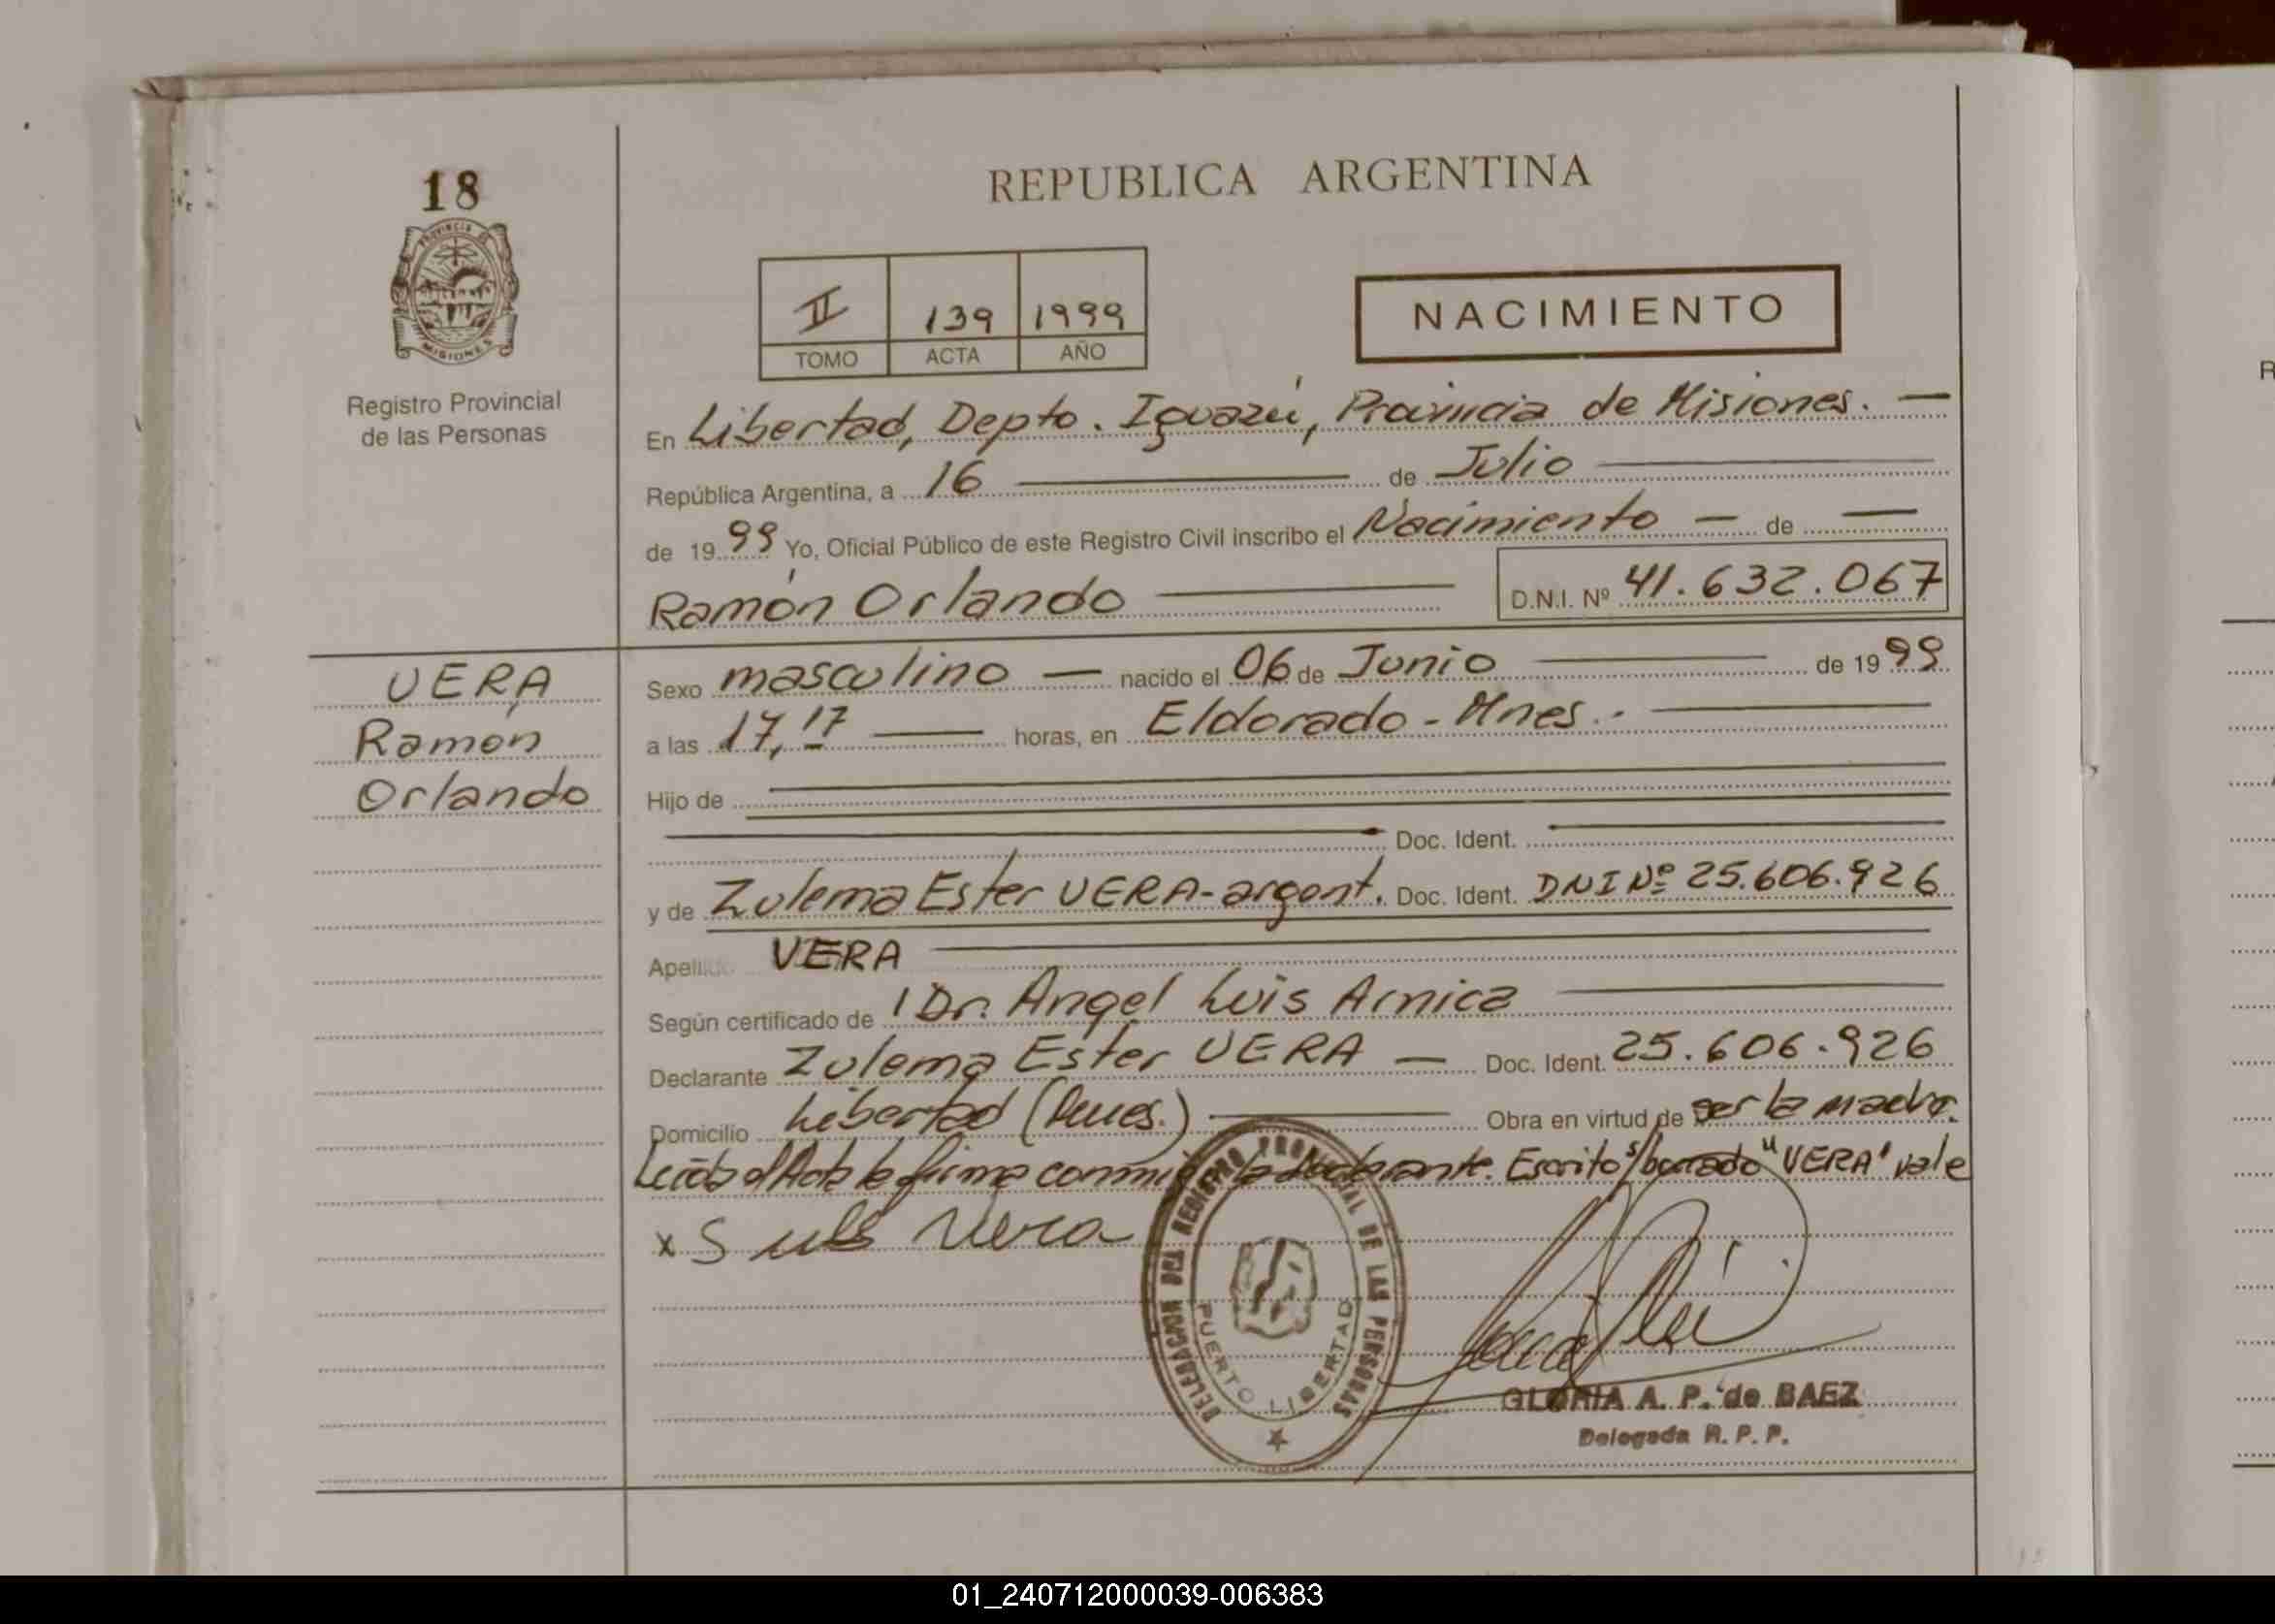 18
PROVINCIA DE
MISIONES
Registro Provincial
de las Personas
REPUBLICA ARGENTINA
II 139 1999
TOMO ACTA AÑO
NACIMIENTO
En Libertad, Depto. Iguazú, Provincia de Misiones. —
República Argentina, a 16 — de Julio —
de 1999 Yo, Oficial Público de este Registro Civil inscribo el Nacimiento — de —
Ramón Orlando — D.N.I. Nº 41.632.067
VERA
Ramón
Orlando
Sexo masculino — nacido el 06 de Junio — de 1999
a las 17,17 — horas, en Eldorado - Mnes. -
Hijo de
Doc. Ident.
y de Zulema Ester VERA - argent. Doc. Ident. DNI Nº 25.606.926
Apellido VERA
Según certificado de Dr. Angel Luis Arnica
Declarante Zulema Ester VERA — Doc. Ident. 25.606.926
Domicilio Libertad (Mnes.) — Obra en virtud de ser la madre.
Leída el Acta la firma conmigo la declarante. Escrito s/borrado "VERA" vale
x Vera
DELEGACION DEL REGISTRO PROVINCIAL DE LAS PERSONAS
PUERTO LIBERTAD
GLORIA A. P. de BAEZ
Delegada R. P. P.
R
01_240712000039-006383